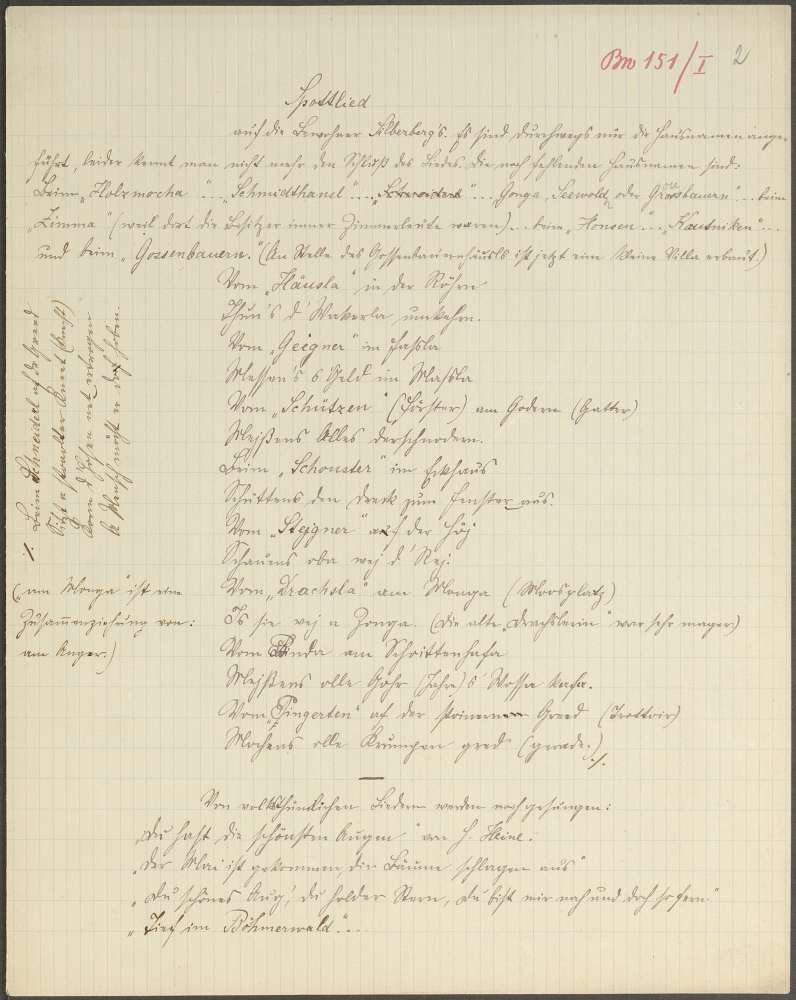 Bn 151/I 2
Spottlied
auf die Bewohner Alberberg's. Es sind durchwegs nur die Hausnamen ange-
führt, leider kennt man nicht mehr den Schluß des Liedes. Die noch fehlenden Hausnamen sind:
Beim „Holzmocha" ... „Schmidthansl" ... ... Gonga, Seewold, oder Grossbauern" ... beim
„Zimma" (weil dort die Besitzer immer Zimmerleute waren) ... beim „Honsen" ... „Hautniken" ...
und beim „Gossenbauern." (An Stelle des Gossenbauernhäusls ist jetzt eine kleine Villa erbaut.)
Vom „Häusla" in der Röhrn
Thun's d' Wakerla umkehrn.
Vom „Geigner" im Fassla
Messen's s Geld im Massla
Vom „Schützen" (Förster) am Godern (Gatter)
Mejßens Olles derschnodern.
Beim „Schouster" im Eckhaus
Schüttens den Dreck zum Fenster aus.
Vom „Steigner" auf der Höj
Schauens oba wej d' Rej.
Vom „Drachsla" am Monga (Moosplatz)
Is sie wej a Zonga. (Die alte „Drachslerin" war sehr mager)
Vom Binda am Schrittenhafa
Mejßens olle Johr (Jahre) s' Wossa kafa.
Vom „Fingerten" af der stoinernen Greed (Trottoir)
Mochens olle Krumpen gred (gerade.)
./.
./. Beim Schneiderl af da Greed
Sicht a stoadter Kneet (Knecht)
Konn d' Hosen net ertrogen
A Mensch möcht er doch hoben.
(„am Monga" ist eine
Zusammenziehung von:
am Anger.)
Von volksthümlichen Liedern werden noch gesungen:
„Du hast die schönsten Augen" von H. Heine.
„Der Mai ist gekommen, die Bäume schlagen aus"
„Du schönes Aug', du holder Stern, du bist mir nah und doch so fern."
„Tief im Böhmerwald." ...